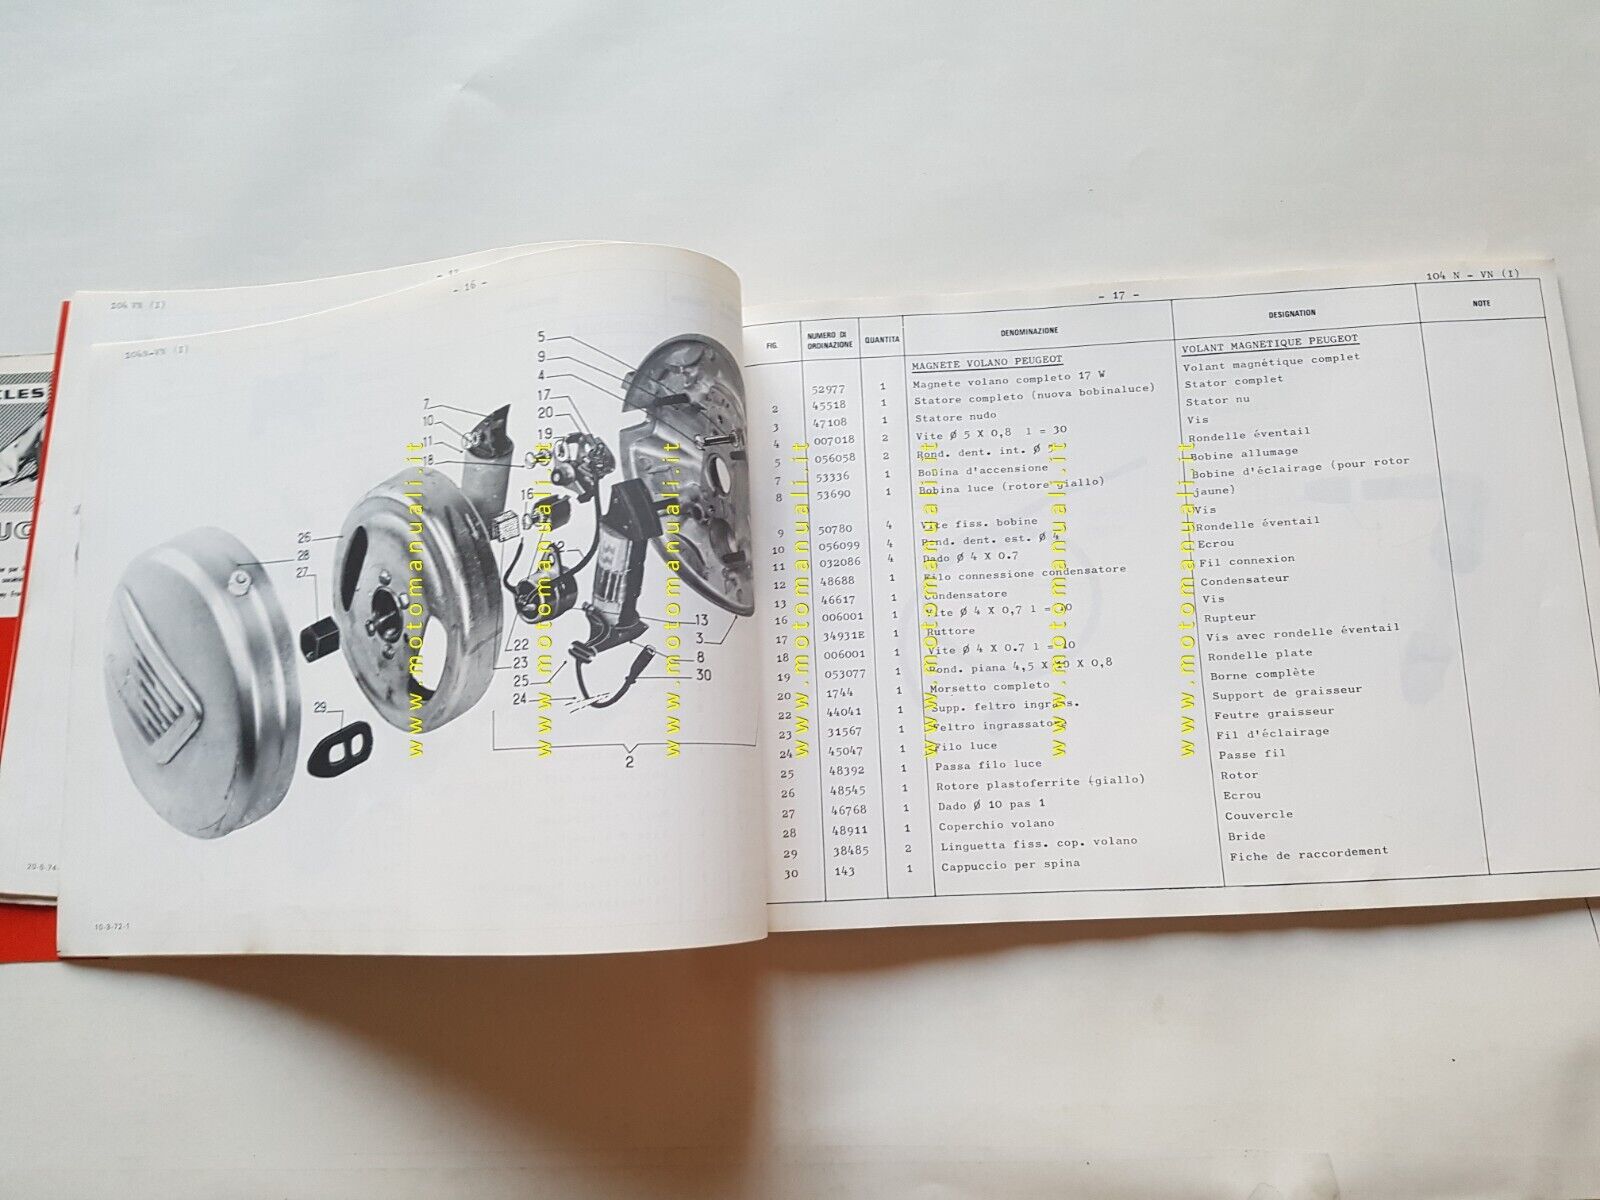 104 VN (I)
- 16 -
5
9
4
17
20
7
10
11
18
19
16
26
28
27
12
22
23
25
24
13
3
8
30
29
2
10-3-72-1
CLES
104 N - VN (I)
- 17 -
FIG. NUMERO DI ORDINAZIONE QUANTITA DENOMINAZIONE DESIGNATION NOTE
MAGNETE VOLANO PEUGEOT VOLANT MAGNETIQUE PEUGEOT
52977 1 Magnete volano completo 17 W Volant magnétique complet
2 45518 1 Statore completo (nuova bobinaluce) Stator complet
3 47108 1 Statore nudo Stator nu
4 007018 2 Vite Ø 5 X 0,8 l = 30 Vis
5 056058 2 Rond. dent. int. Ø 5 Rondelle éventail
7 53336 1 Bobina d'accensione Bobine allumage
8 53690 1 Bobina luce (rotore giallo) Bobine d'éclairage (pour rotor
jaune)
9 50780 4 Vite fiss. bobine Vis
10 056099 4 Rond. dent. est. Ø 4 Rondelle éventail
11 032086 4 Dado Ø 4 X 0.7 Ecrou
12 48688 1 Filo connessione condensatore Fil connexion
13 46617 1 Condensatore Condensateur
16 006001 1 Vite Ø 4 X 0,7 l = 10 Vis
17 34931E 1 Ruttore Rupteur
18 006001 1 Vite Ø 4 X 0.7 l = 10 Vis avec rondelle éventail
19 053077 1 Rond. piana 4,5 X 10 X 0,8 Rondelle plate
20 1744 1 Morsetto completo Borne complète
22 44041 1 Supp. feltro ingrass. Support de graisseur
23 31567 1 Feltro ingrassatore Feutre graisseur
24 45047 1 Filo luce Fil d'éclairage
25 48392 1 Passa filo luce Passe fil
26 48545 1 Rotore plastoferrite (giallo) Rotor
27 46768 1 Dado Ø 10 pas 1 Ecrou
28 48911 1 Coperchio volano Couvercle
29 38485 2 Linguetta fiss. cop. volano Bride
30 143 1 Cappuccio per spina Fiche de raccordement
www.motomanuali.it
www.motomanuali.it
www.motomanuali.it
www.motomanuali.it
www.motomanuali.it
www.motomanuali.it
www.motomanuali.it